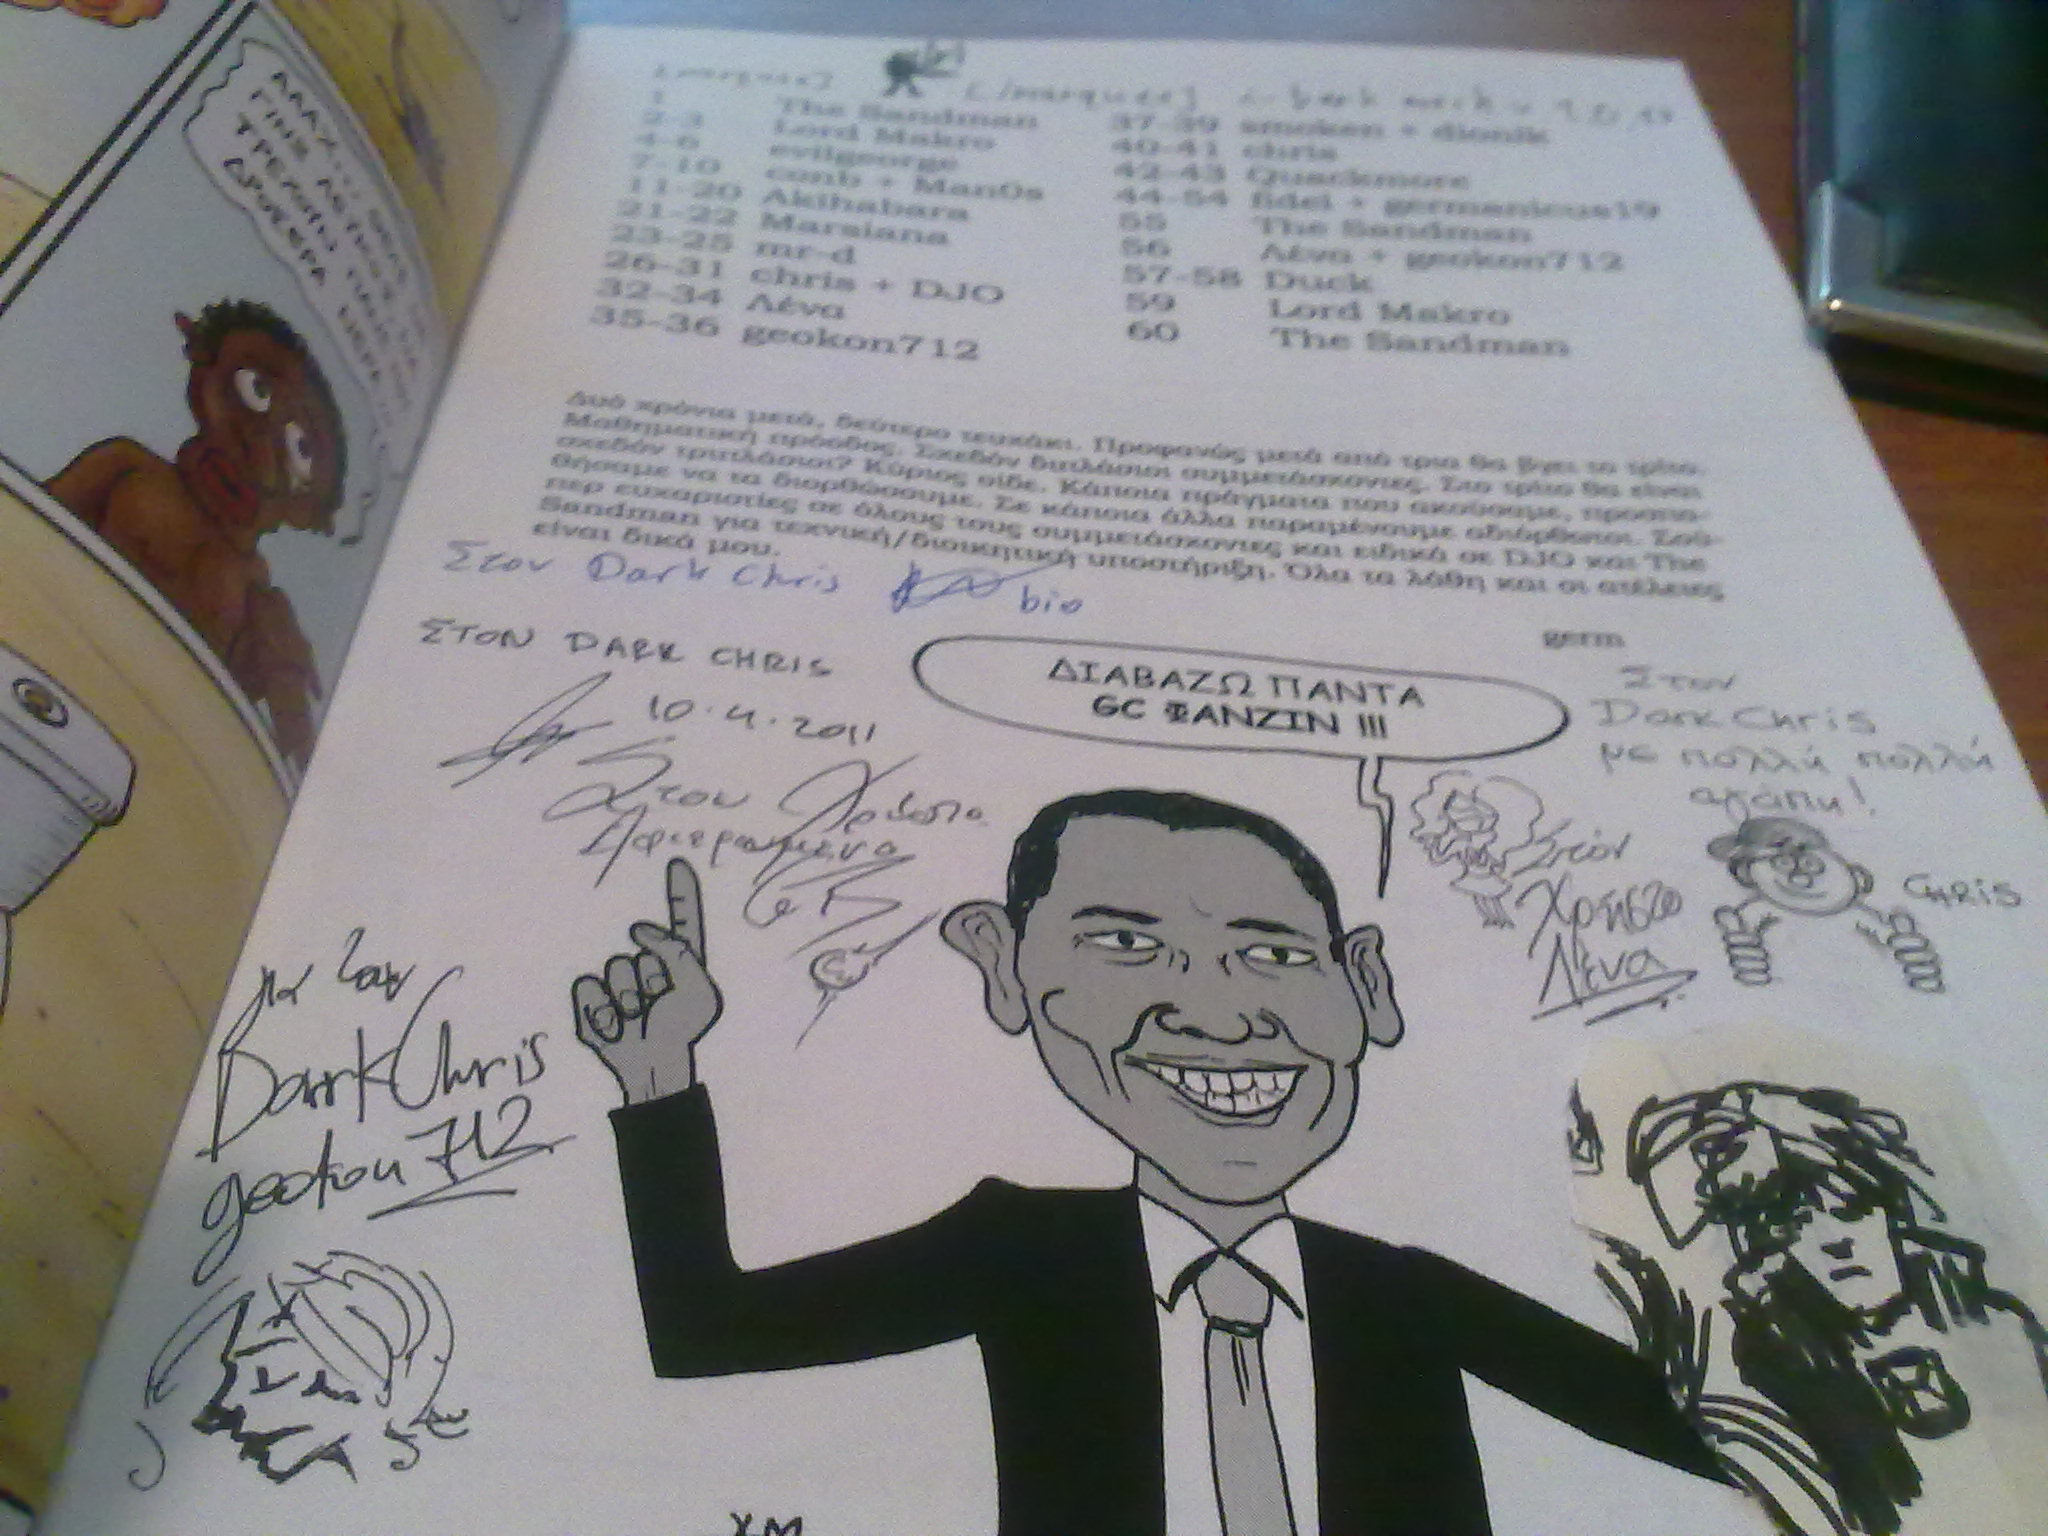 ΑΑΑΧ...
ΓΙΝΕ
ΤΡΕΧΟΥΝ
ΔΡΟΣΕΡΑ ΝΕΡΑ
1 The Sandman
2-3 Lord Makro
4-6 evilgeorge
7-10 conb + Man0s
11-20 Akihabara
21-22 Marsiana
23-25 mr-d
26-31 chris + DJO
32-34 Λένα
35-36 geokon712
37-39 smoken + dionik
40-41 chris
42-43 Quackmore
44-54 fidel + germanicus19
55 The Sandman
56 Λένα + geokon712
57-58 Duck
59 Lord Makro
60 The Sandman
Δυό χρόνια μετά, δεύτερο τευχάκι. Προφανώς μετά από τρία θα βγει το τρίτο.
Μαθηματική πρόοδος. Σχεδόν διπλάσιοι συμμετάσχοντες. Στο τρίτο θα είναι
σχεδόν τριπλάσιοι? Κύριος οίδε. Κάποια πράγματα που ακούσαμε, προσπα-
θήσαμε να τα διορθώσουμε. Σε κάποια άλλα παραμένουμε αδιόρθωτοι. Σού-
περ ευχαριστίες σε όλους τους συμμετάσχοντες και ειδικά σε DJO και The
Sandman για τεχνική/διοικητική υποστήριξη. Όλα τα λάθη και οι ατέλειες
είναι δικά μου.
germ
Στον Dark Chris bio
ΣΤΟΝ DARK CHRIS
10.4.2011
ΔΙΑΒΑΖΩ ΠΑΝΤΑ
GC ΦΑΝΖΙΝ !!!
Στον
Dark Chris
με πολλή πολλή
αγάπη!
CHRIS
Στον Χρήστο
Αφιερωμένο
Στον
Χρήστο
Λένα
για τον
Dark Chris
geokon 712